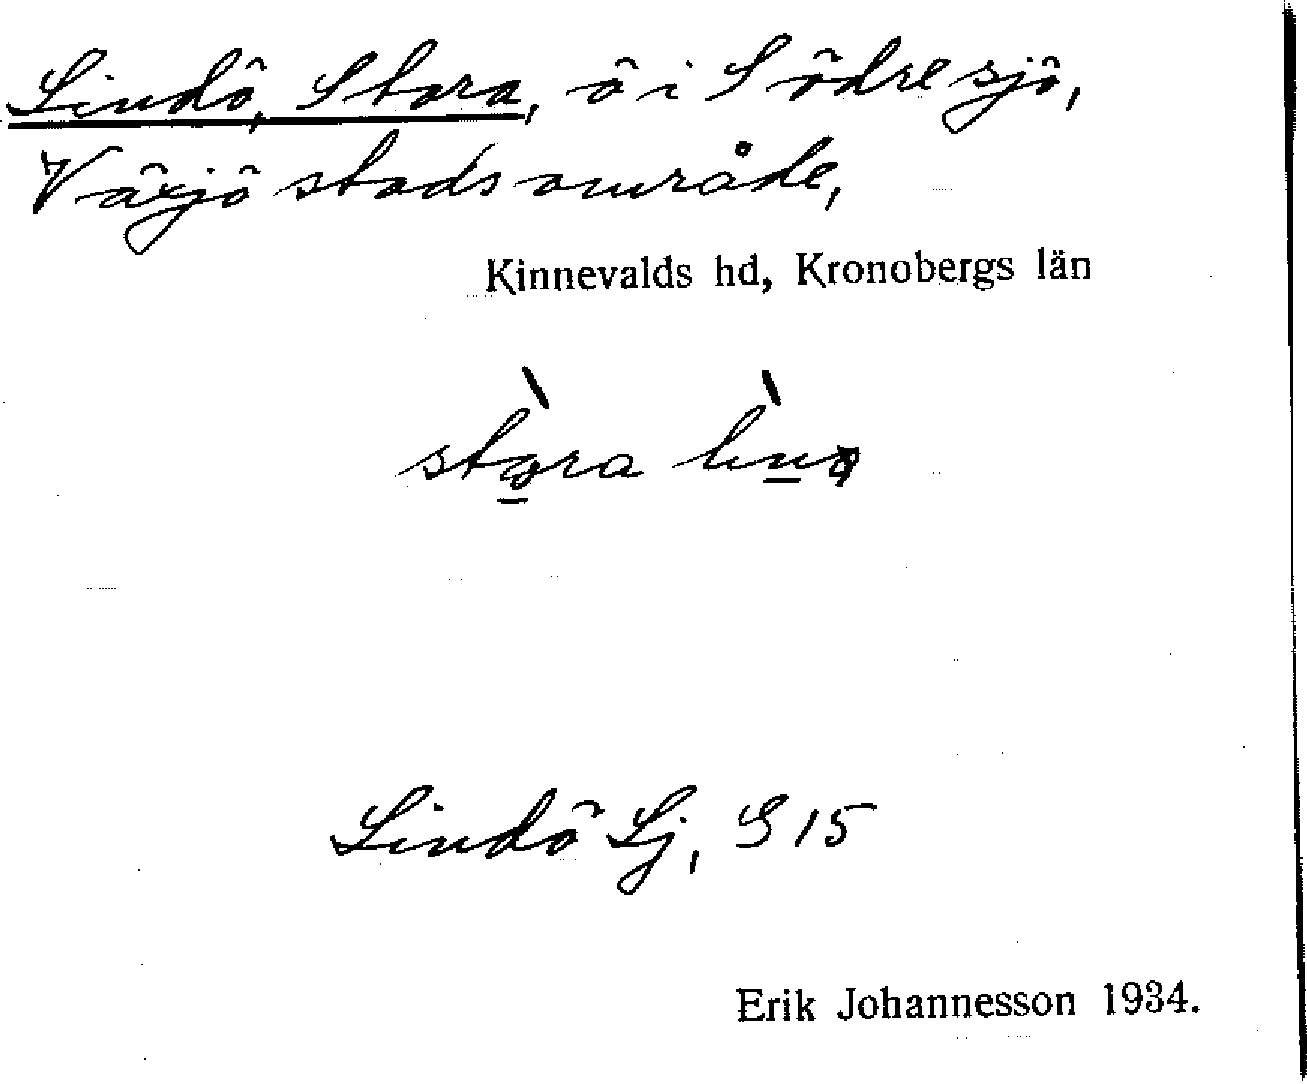 Lindö, Stora, ö i Södresjö,
Växjö stadsområde,
Kinnevalds hd, Kronobergs län
stora
Lindö Lj, S 15
Erik Johannesson 1934.